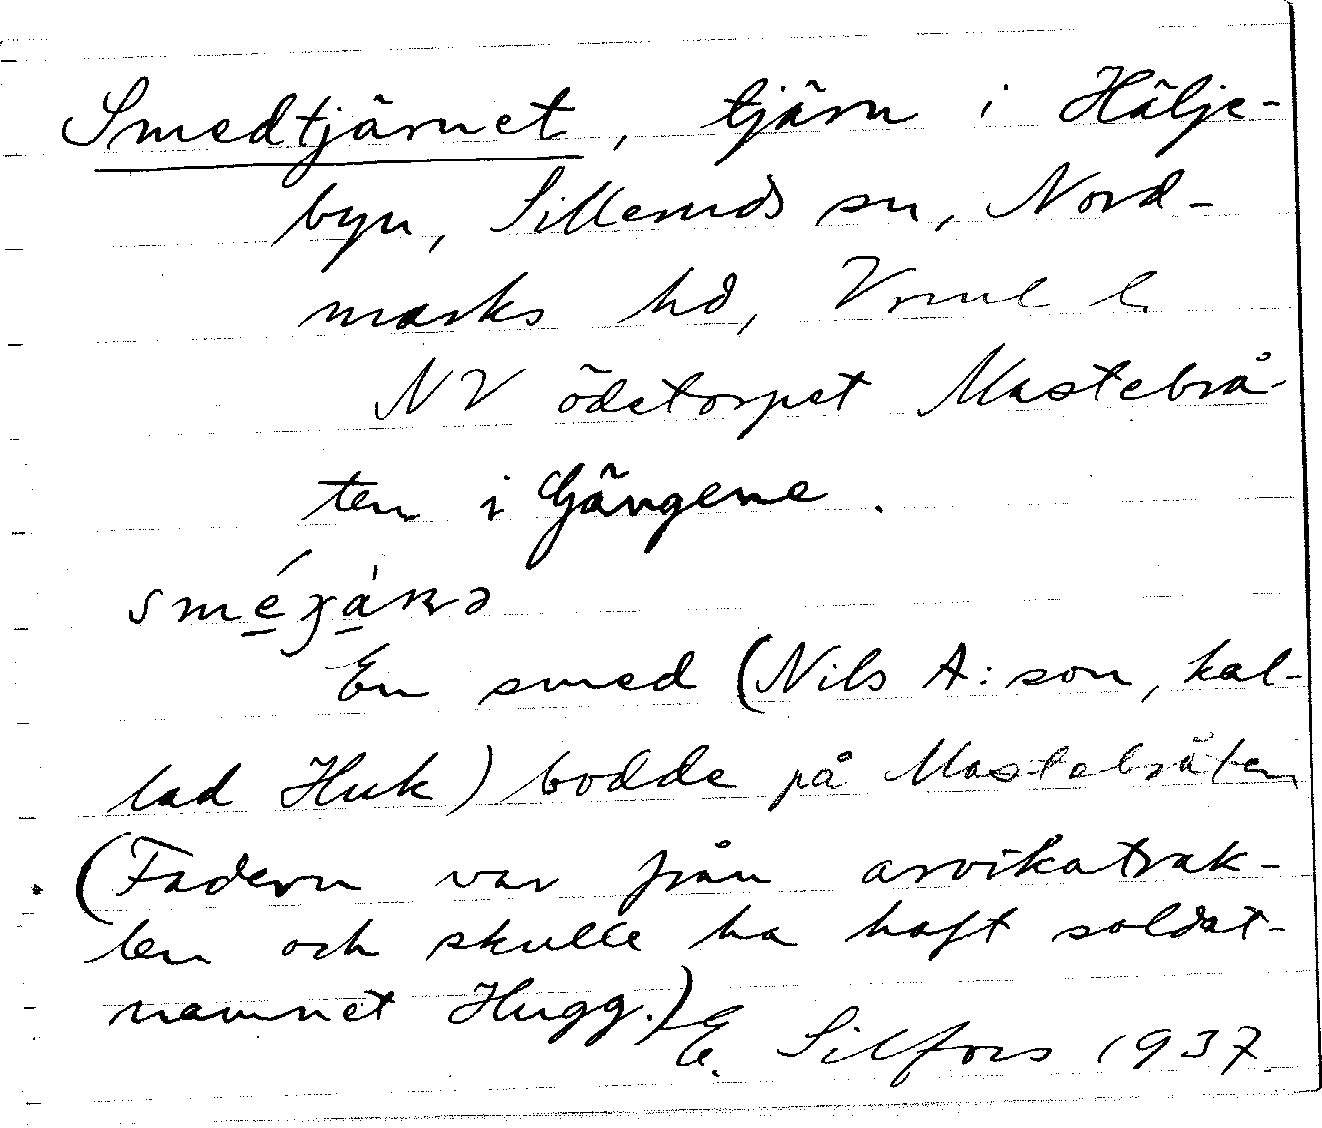 Smedtjärnet, tjärn i Hälje-
byn, Silleruds sn, Nord-
marks hd, Vrml l.
NV ödetorpet Mastebrå-
ten i Gängene.
En smed (Nils A:son, kal-
lad Huk) bodde på Mastebråten
(Fadern var från arvikatrak-
ten och skulle ha haft soldat-
namnet Hugg.)
E. Silfors 1937.